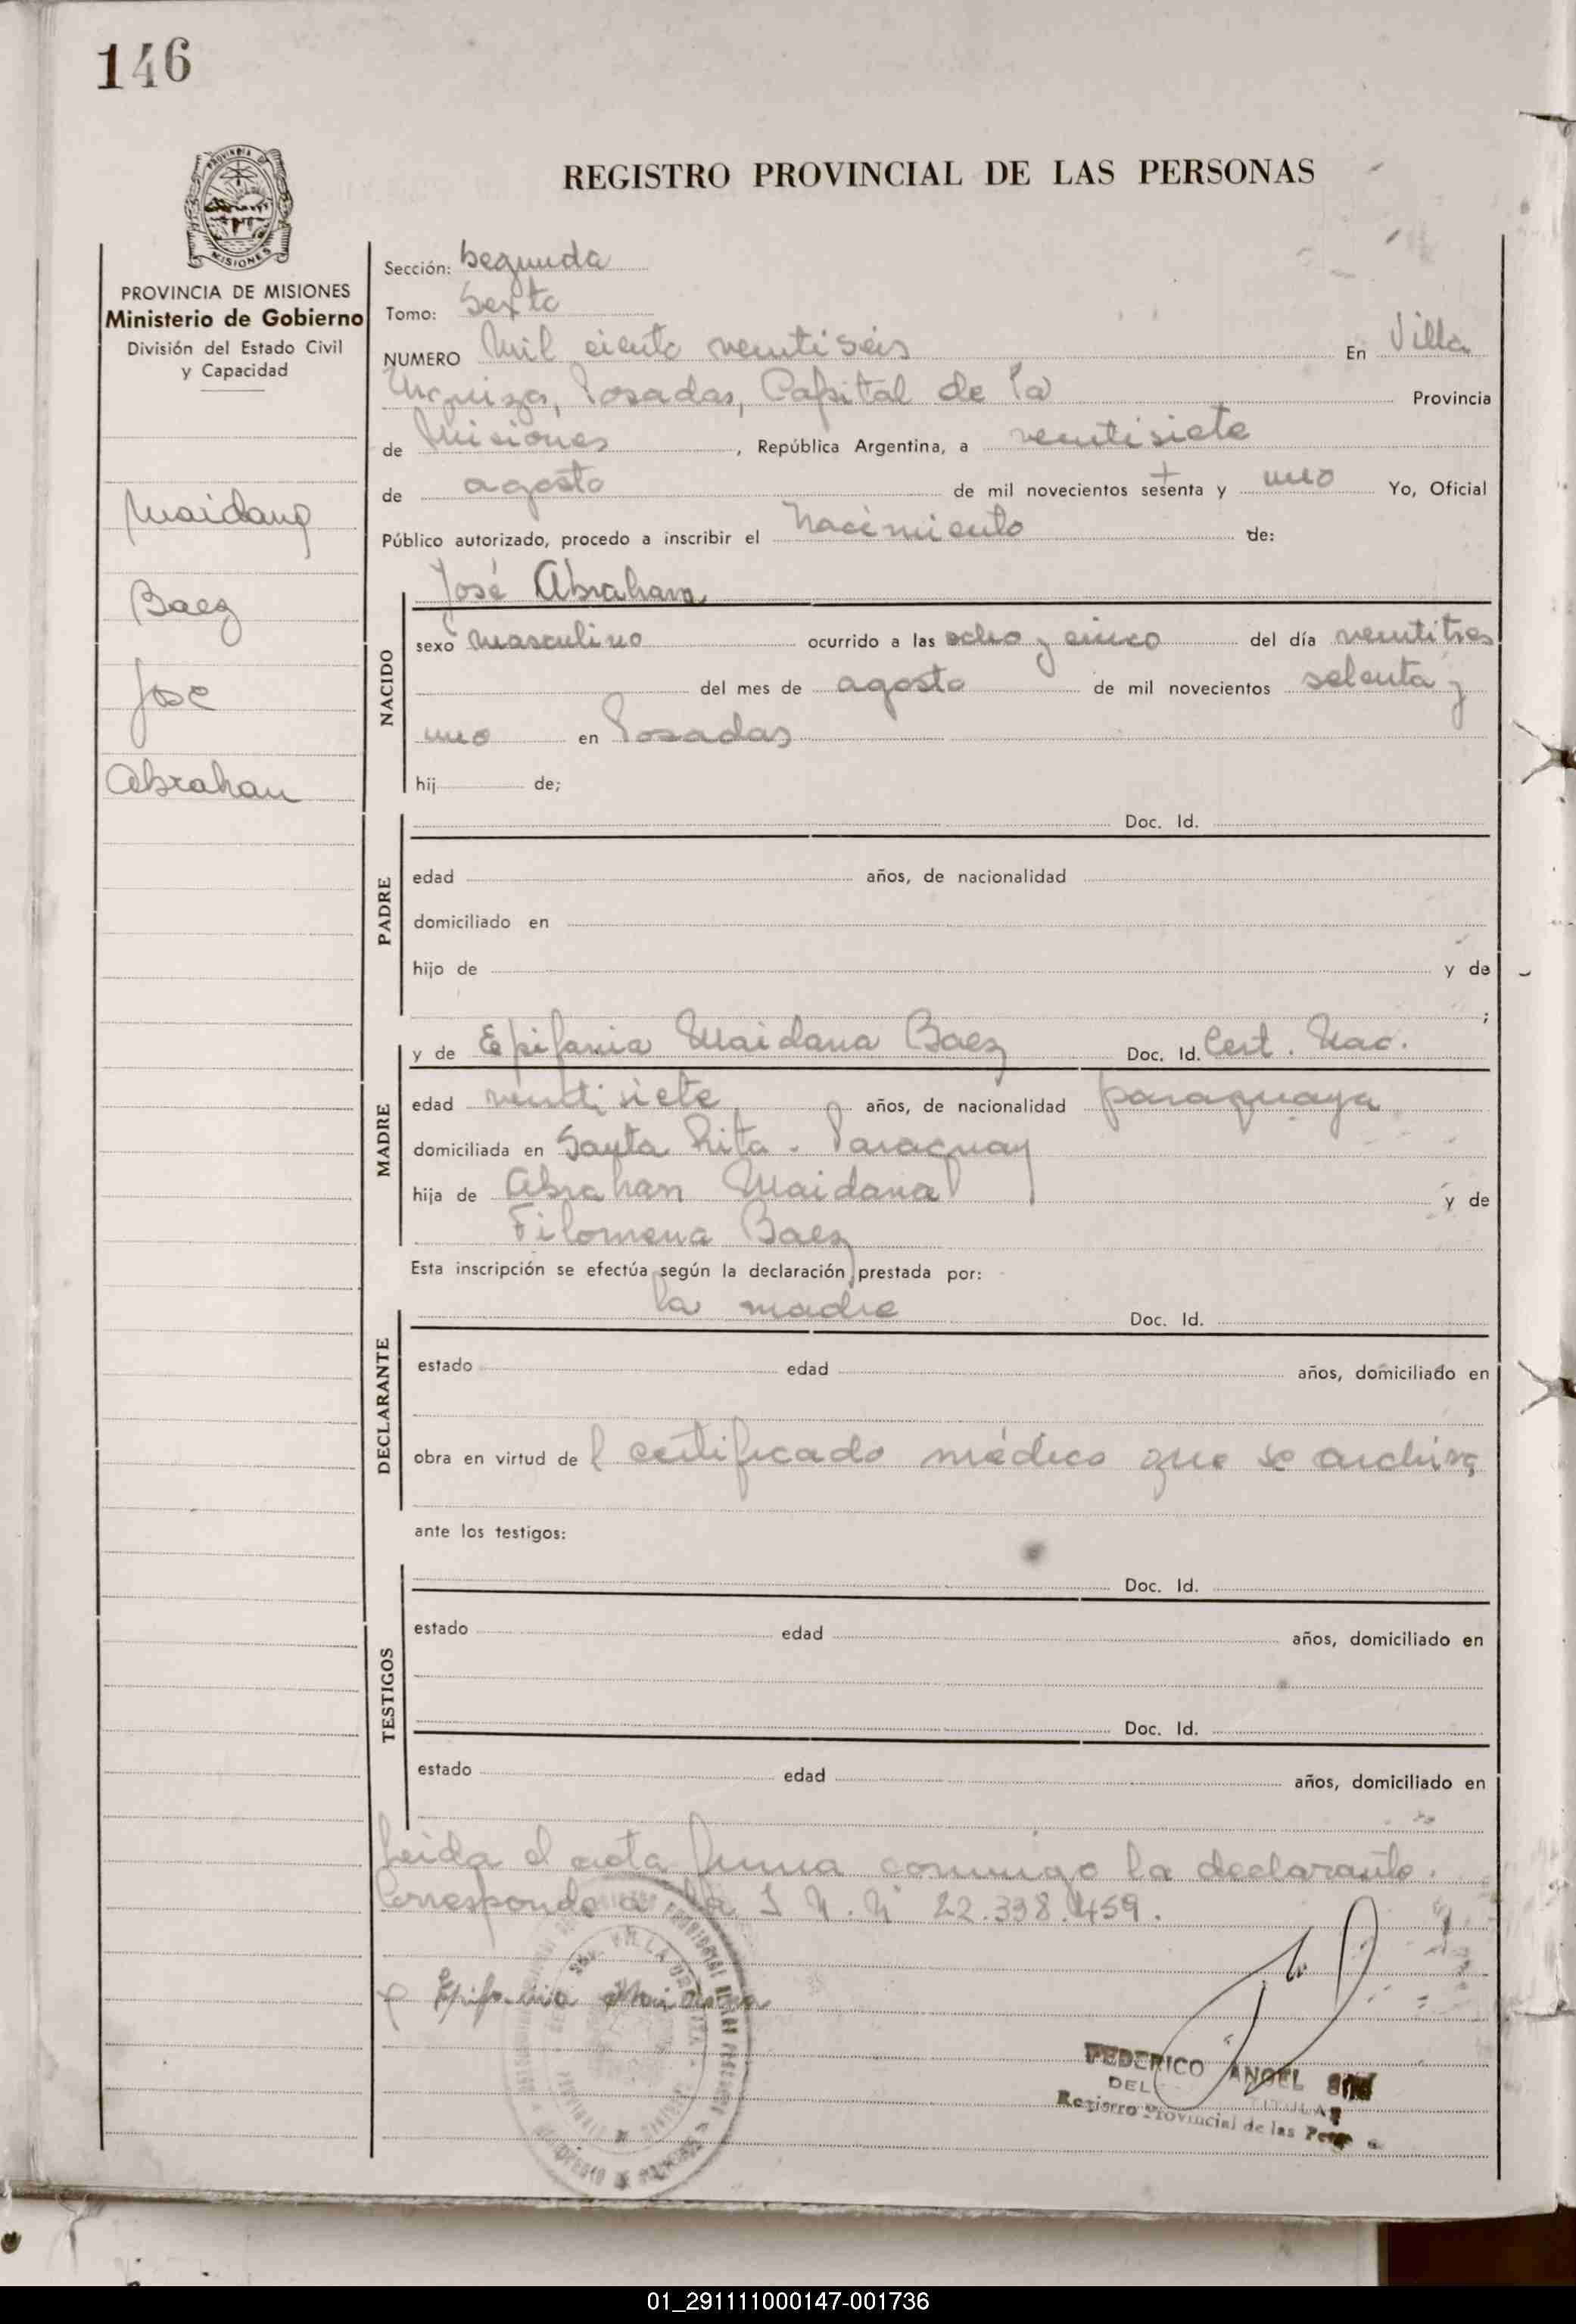 146
REGISTRO PROVINCIAL DE LAS PERSONAS
PROVINCIA DE
MISIONES
PROVINCIA DE MISIONES
Ministerio de Gobierno
División del Estado Civil
y Capacidad
Maidana
Baez
Jose
Abrahan
Sección: Segunda
Tomo: Sexto
NUMERO Mil ciento veintiseis En Villa
Urquiza, Posadas, Capital de la Provincia
de Misiones, República Argentina, a veintisiete
de agosto de mil novecientos setenta y uno Yo, Oficial
Público autorizado, procedo a inscribir el Nacimiento de:
NACIDO
José Abraham
sexo masculino ocurrido a las ocho y cinco del día veintitres
del mes de agosto de mil novecientos setenta y
uno en Posadas
hij de;
PADRE
Doc. Id.
edad años, de nacionalidad
domiciliado en
hijo de y de
;
MADRE
y de Epifania Maidana Baez Doc. Id. Cert. Nac.
edad veintisiete años, de nacionalidad paraguaya
domiciliada en Santa Rita - Paraguay
hija de Abrahan Maidana y de
Filomena Baez
Esta inscripción se efectúa según la declaración prestada por:
DECLARANTE
la madre Doc. Id.
estado edad años, domiciliado en
obra en virtud del certificado médico que se archiva
ante los testigos:
TESTIGOS
Doc. Id.
estado edad años, domiciliado en
Doc. Id.
estado edad años, domiciliado en
Leida el acta firma conmigo la declarante.
Corresponde a la I N. N° 22.338.459.
Epifania Maidana
FEDERICO ANGEL
DEL TITULAR
Registro Provincial de las
01_291111000147-001736